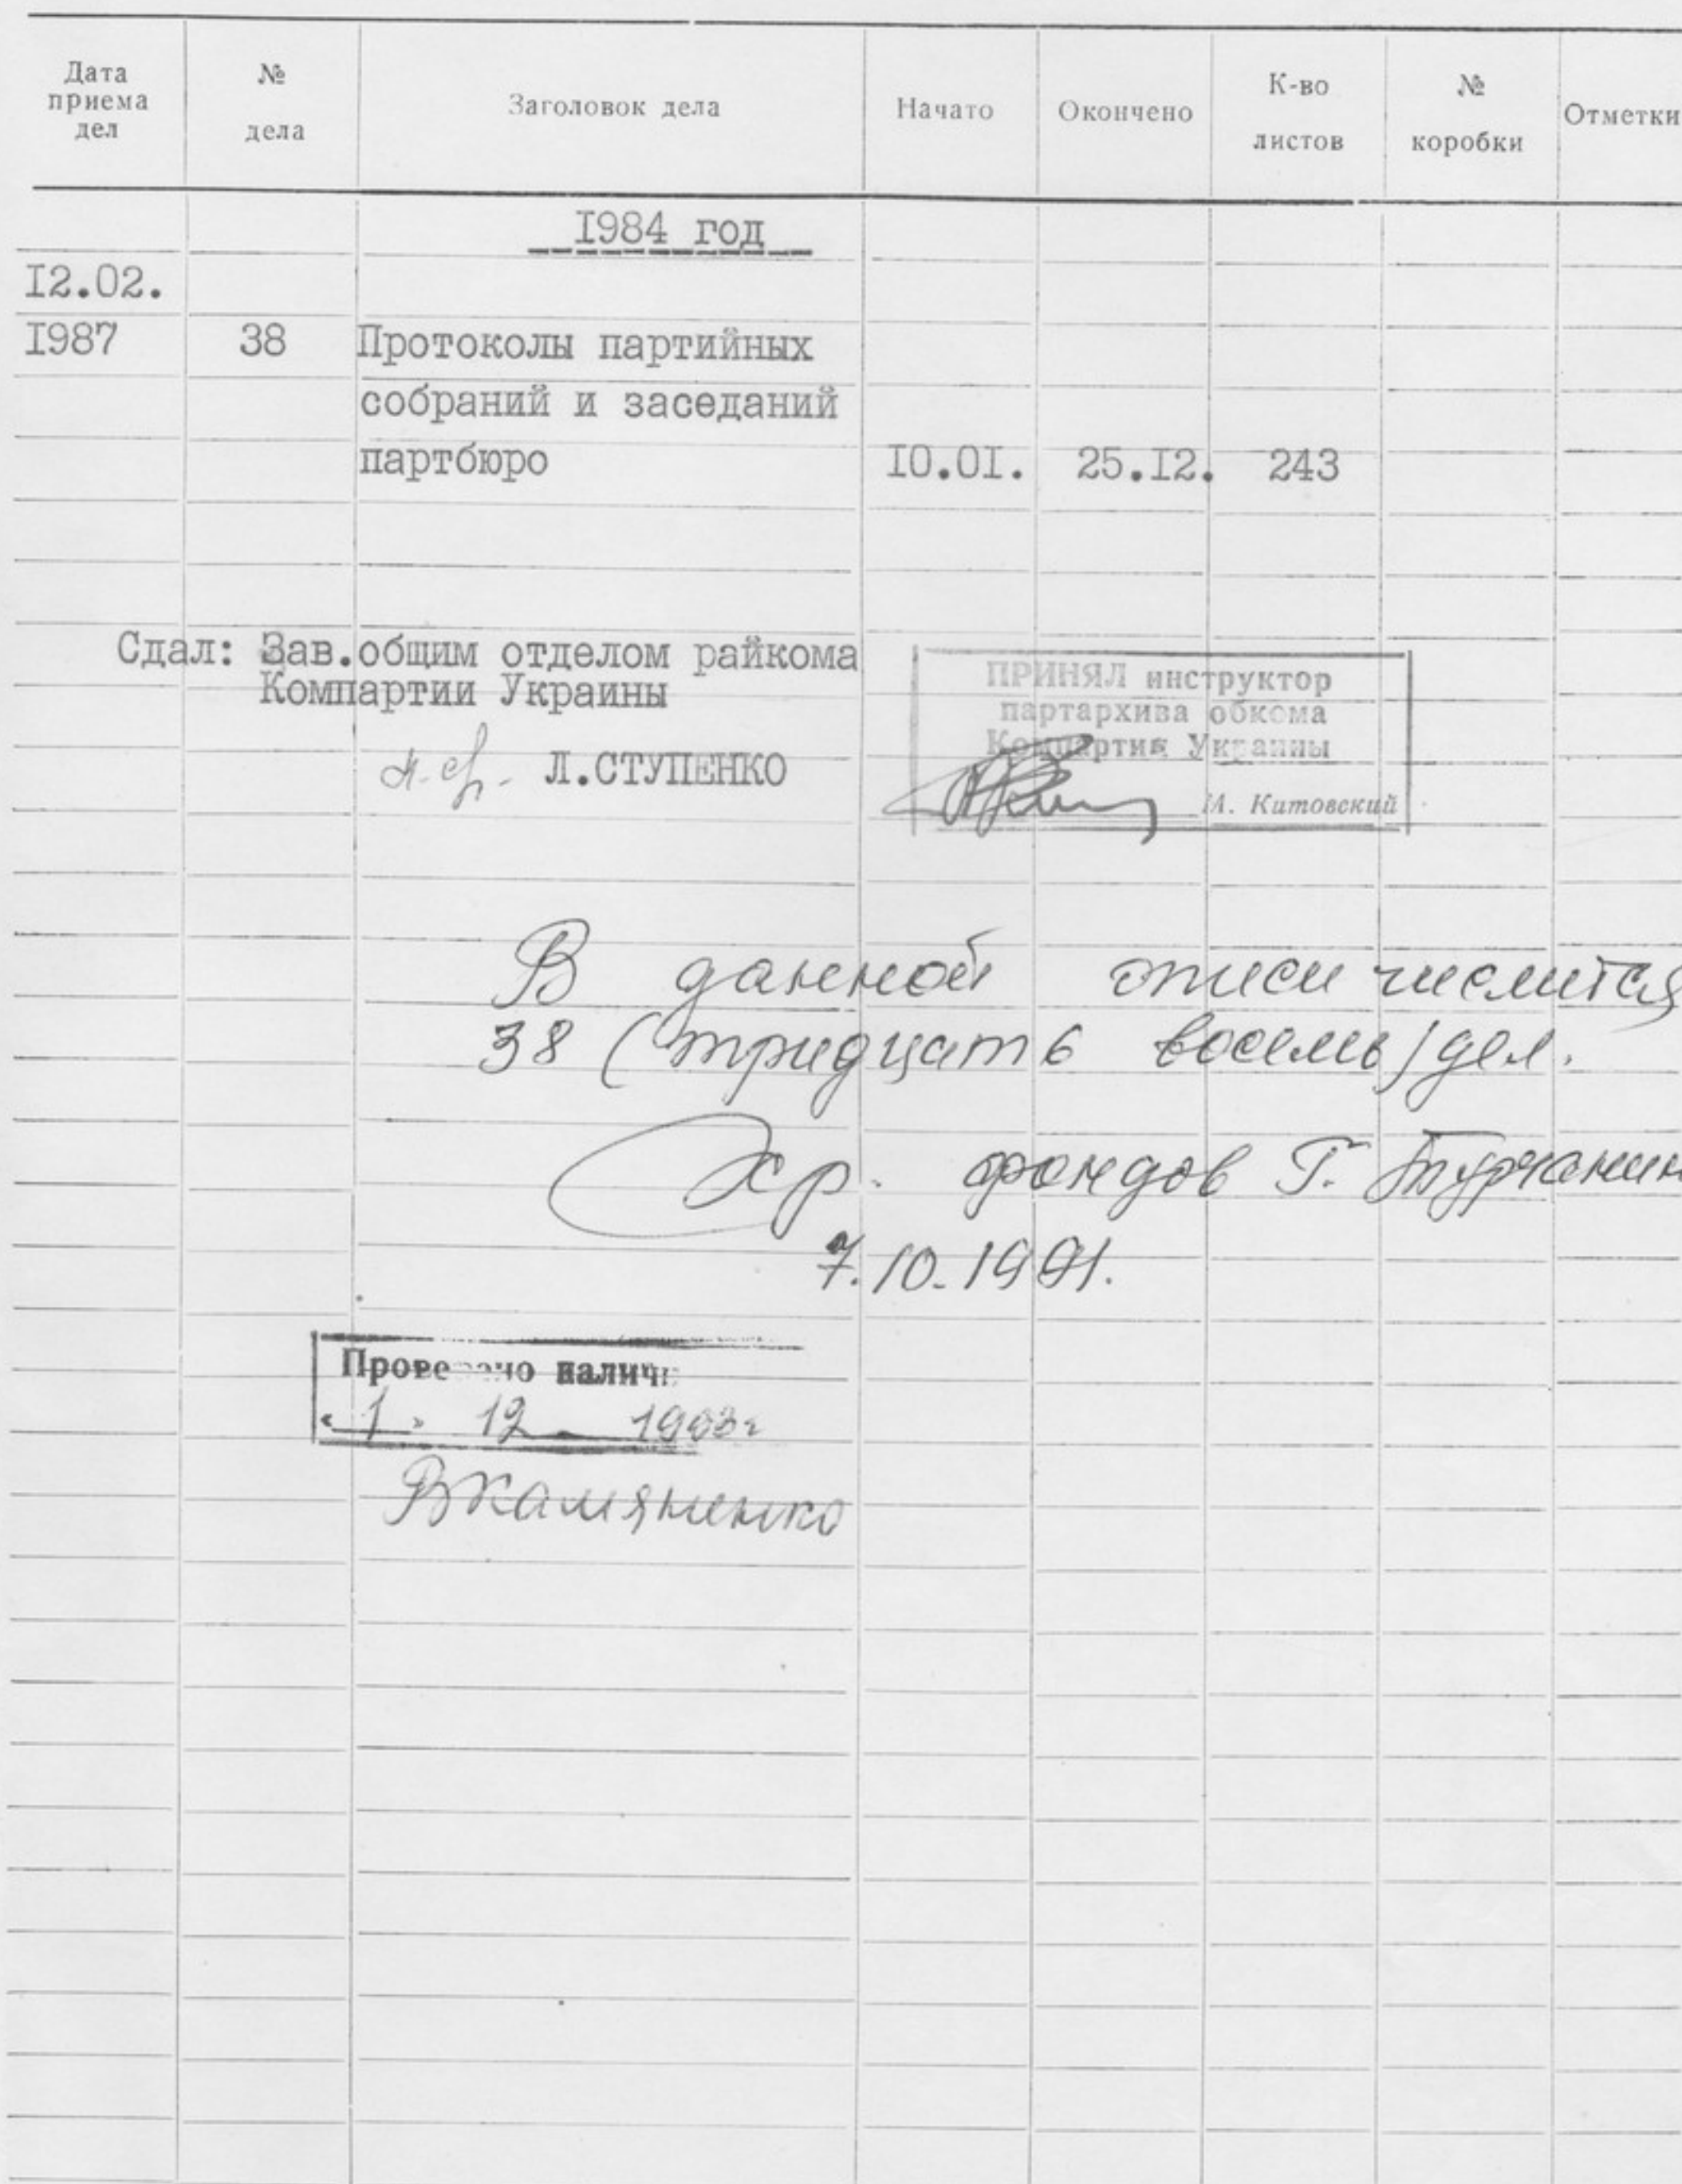 Дата приема дел
№ дела
Заголовок дела
Начато
Окончено
К-во листов
№ коробки
Отметки
1984 год
12.02.
1987 38 Протоколы партийных
собраний и заседаний
партбюро 10.01. 25.12. 243
Сдал: Зав.общим отделом райкома
Компартии Украины
Л.СТУПЕНКО
ПРИНЯЛ инструктор
партархива обкома
Компартии Украины
М. Китовский
В данной описи числится
38 (тридцать восемь) дел.
Хр. фондов Г. Турчанин
7.10.1991.
Проверено наличи
«1» 12 1993г
ВКамяненко